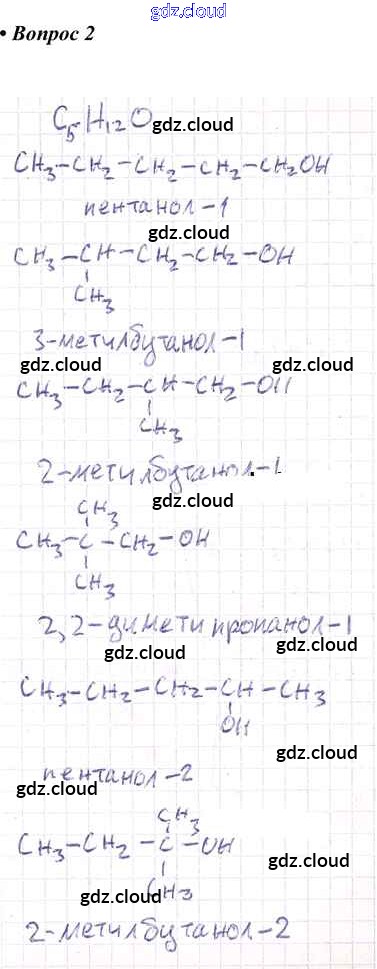 gdz.cloud
• Вопрос 2
C5H12O
gdz.cloud
CH3-CH2-CH2-CH2-CH2OH
пентанол-1
gdz.cloud
CH3-CH-CH2-CH2-OH
CH3
3-метилбутанол-1
gdz.cloud gdz.cloud
CH3-CH2-CH-CH2-OH
CH3
2-метилбутанол-1
CH3
gdz.cloud
CH3-C-CH2-OH
CH3
2,2-димети пропанол-1
gdz.cloud gdz.cloud
CH3-CH2-CH2-CH-CH3
OH
gdz.cloud
пентанол-2
gdz.cloud
CH3
CH3-CH2-C-OH
gdz.cloud
CH3
gdz.cloud
2-метилбутанол-2